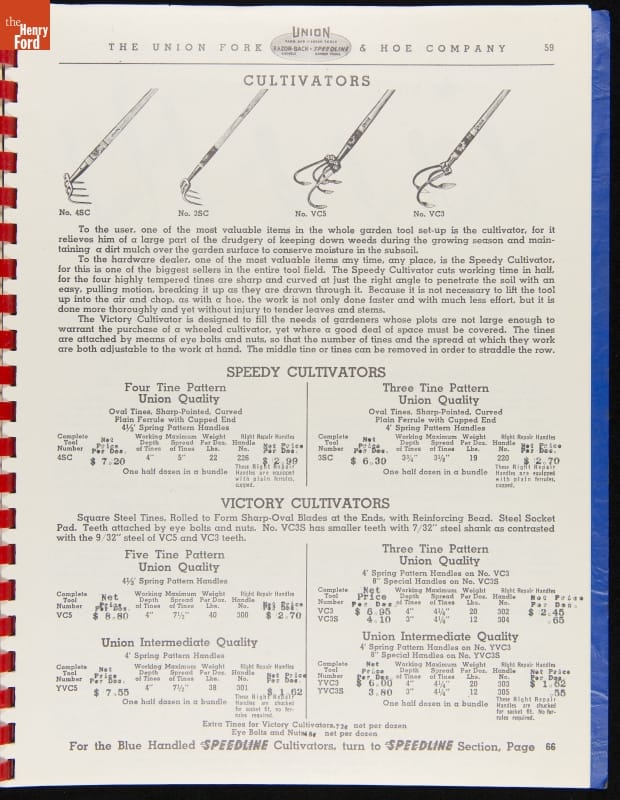 the
Henry
Ford
UNION
THE UNION FORK & HOE COMPANY 59
RAZOR-BACK SPEEDLINE
CULTIVATORS
No. 4SC No. 3SC No. VC5 No. VC3
To the user, one of the most valuable items in the whole garden tool set-up is the cultivator, for it
relieves him of a large part of the drudgery of keeping down weeds during the growing season and main-
taining a dirt mulch over the garden surface to conserve moisture in the subsoil.
To the hardware dealer, one of the most valuable items any time, any place, is the Speedy Cultivator,
for this is one of the biggest sellers in the entire tool field. The Speedy Cultivator cuts working time in half,
for the four highly tempered tines are sharp and curved at just the right angle to penetrate the soil with an
easy, pulling motion, breaking it up as they are drawn through it. Because it is not necessary to lift the tool
up into the air and chop, as with a hoe, the work is not only done faster and with much less effort, but it is
done more thoroughly and yet without injury to tender leaves and stems.
The Victory Cultivator is designed to fill the needs of gardeners whose plots are not large enough to
warrant the purchase of a wheeled cultivator, yet where a good deal of space must be covered. The tines
are attached by means of eye bolts and nuts, so that the number of tines and the spread at which they work
are both adjustable to the work at hand. The middle tine or tines can be removed in order to straddle the row.
SPEEDY CULTIVATORS
Four Tine Pattern
Union Quality
Oval Tines, Sharp-Pointed, Curved
Plain Ferrule with Cupped End
4½' Spring Pattern Handles
Complete Tool Number Net Price Per Doz. Working Depth of Tines Maximum Spread of Tines Weight Per Doz. Lbs. Right Repair Handles Handle No. Net Price Per Doz.
4SC $ 7.20 4" 5" 22 226 $ 2.99
One half dozen in a bundle
These Right Repair
Handles are equipped
with plain ferrules,
cupped.
Three Tine Pattern
Union Quality
Oval Tines, Sharp-Pointed, Curved
Plain Ferrule with Cupped End
4' Spring Pattern Handles
Complete Tool Number Net Price Per Doz. Working Depth of Tines Maximum Spread of Tines Weight Per Doz. Lbs. Right Repair Handles Handle No. Net Price Per Doz.
3SC $ 6.30 3¾" 3⅛" 19 220 $ 2.70
One half dozen in a bundle
These Right Repair
Handles are equipped
with plain ferrules,
cupped.
VICTORY CULTIVATORS
Square Steel Tines, Rolled to Form Sharp-Oval Blades at the Ends, with Reinforcing Bead. Steel Socket
Pad. Teeth attached by eye bolts and nuts. No. VC3S has smaller teeth with 7/32" steel shank as contrasted
with the 9/32" steel of VC5 and VC3 teeth.
Five Tine Pattern
Union Quality
4½' Spring Pattern Handles
Complete Tool Number Net Price Per Doz Working Depth of Tines Maximum Spread of Tines Weight Per Doz. Lbs. Right Repair Handles Handle No.
VC5 $ 8.80 4" 7½" 40 300 $ 2.70
Union Intermediate Quality
4' Spring Pattern Handles
Complete Tool Number Net Price Per Doz. Working Depth of Tines Maximum Spread of Tines Weight Per Doz. Lbs. Right Repair Handles Handle No. Net Price Per Doz.
YVC5 $ 7.55 4" 7½" 38 301 $ 1.62
One half dozen in a bundle
These Right Repair
Handles are chucked
for socket fit, no fer-
rules required.
Three Tine Pattern
Union Quality
4' Spring Pattern Handles on No. VC3
8" Special Handles on No. VC3S
Complete Tool Number Net Price Per Doz Working Depth of Tines Maximum Spread of Tines Weight Per Doz. Lbs. Right Repair Handles Handle No. Net Price Per Doz
VC3 $ 6.95 4" 4⅛" 20 302 $ 2.45
VC3S 4.10 3" 4⅛" 12 304 .65
Union Intermediate Quality
4' Spring Pattern Handles on No. YVC3
8" Special Handles on No. YVC3S
Complete Tool Number Net Price Per Doz. Working Depth of Tines Maximum Spread of Tines Weight Per Doz. Lbs. Right Repair Handles Handle No. Net Price Per Doz.
YVC3 $ 6.00 4" 4⅛" 20 303 $ 1.62
YVC3S 3.80 3" 4⅛" 12 305 .55
One half dozen in a bundle
These Right Repair
Handles are chucked
for socket fit, no fer-
rules required.
Extra Tines for Victory Cultivators, net per dozen
Eye Bolts and Nuts net per dozen
For the Blue Handled SPEEDLINE Cultivators, turn to SPEEDLINE Section, Page 66